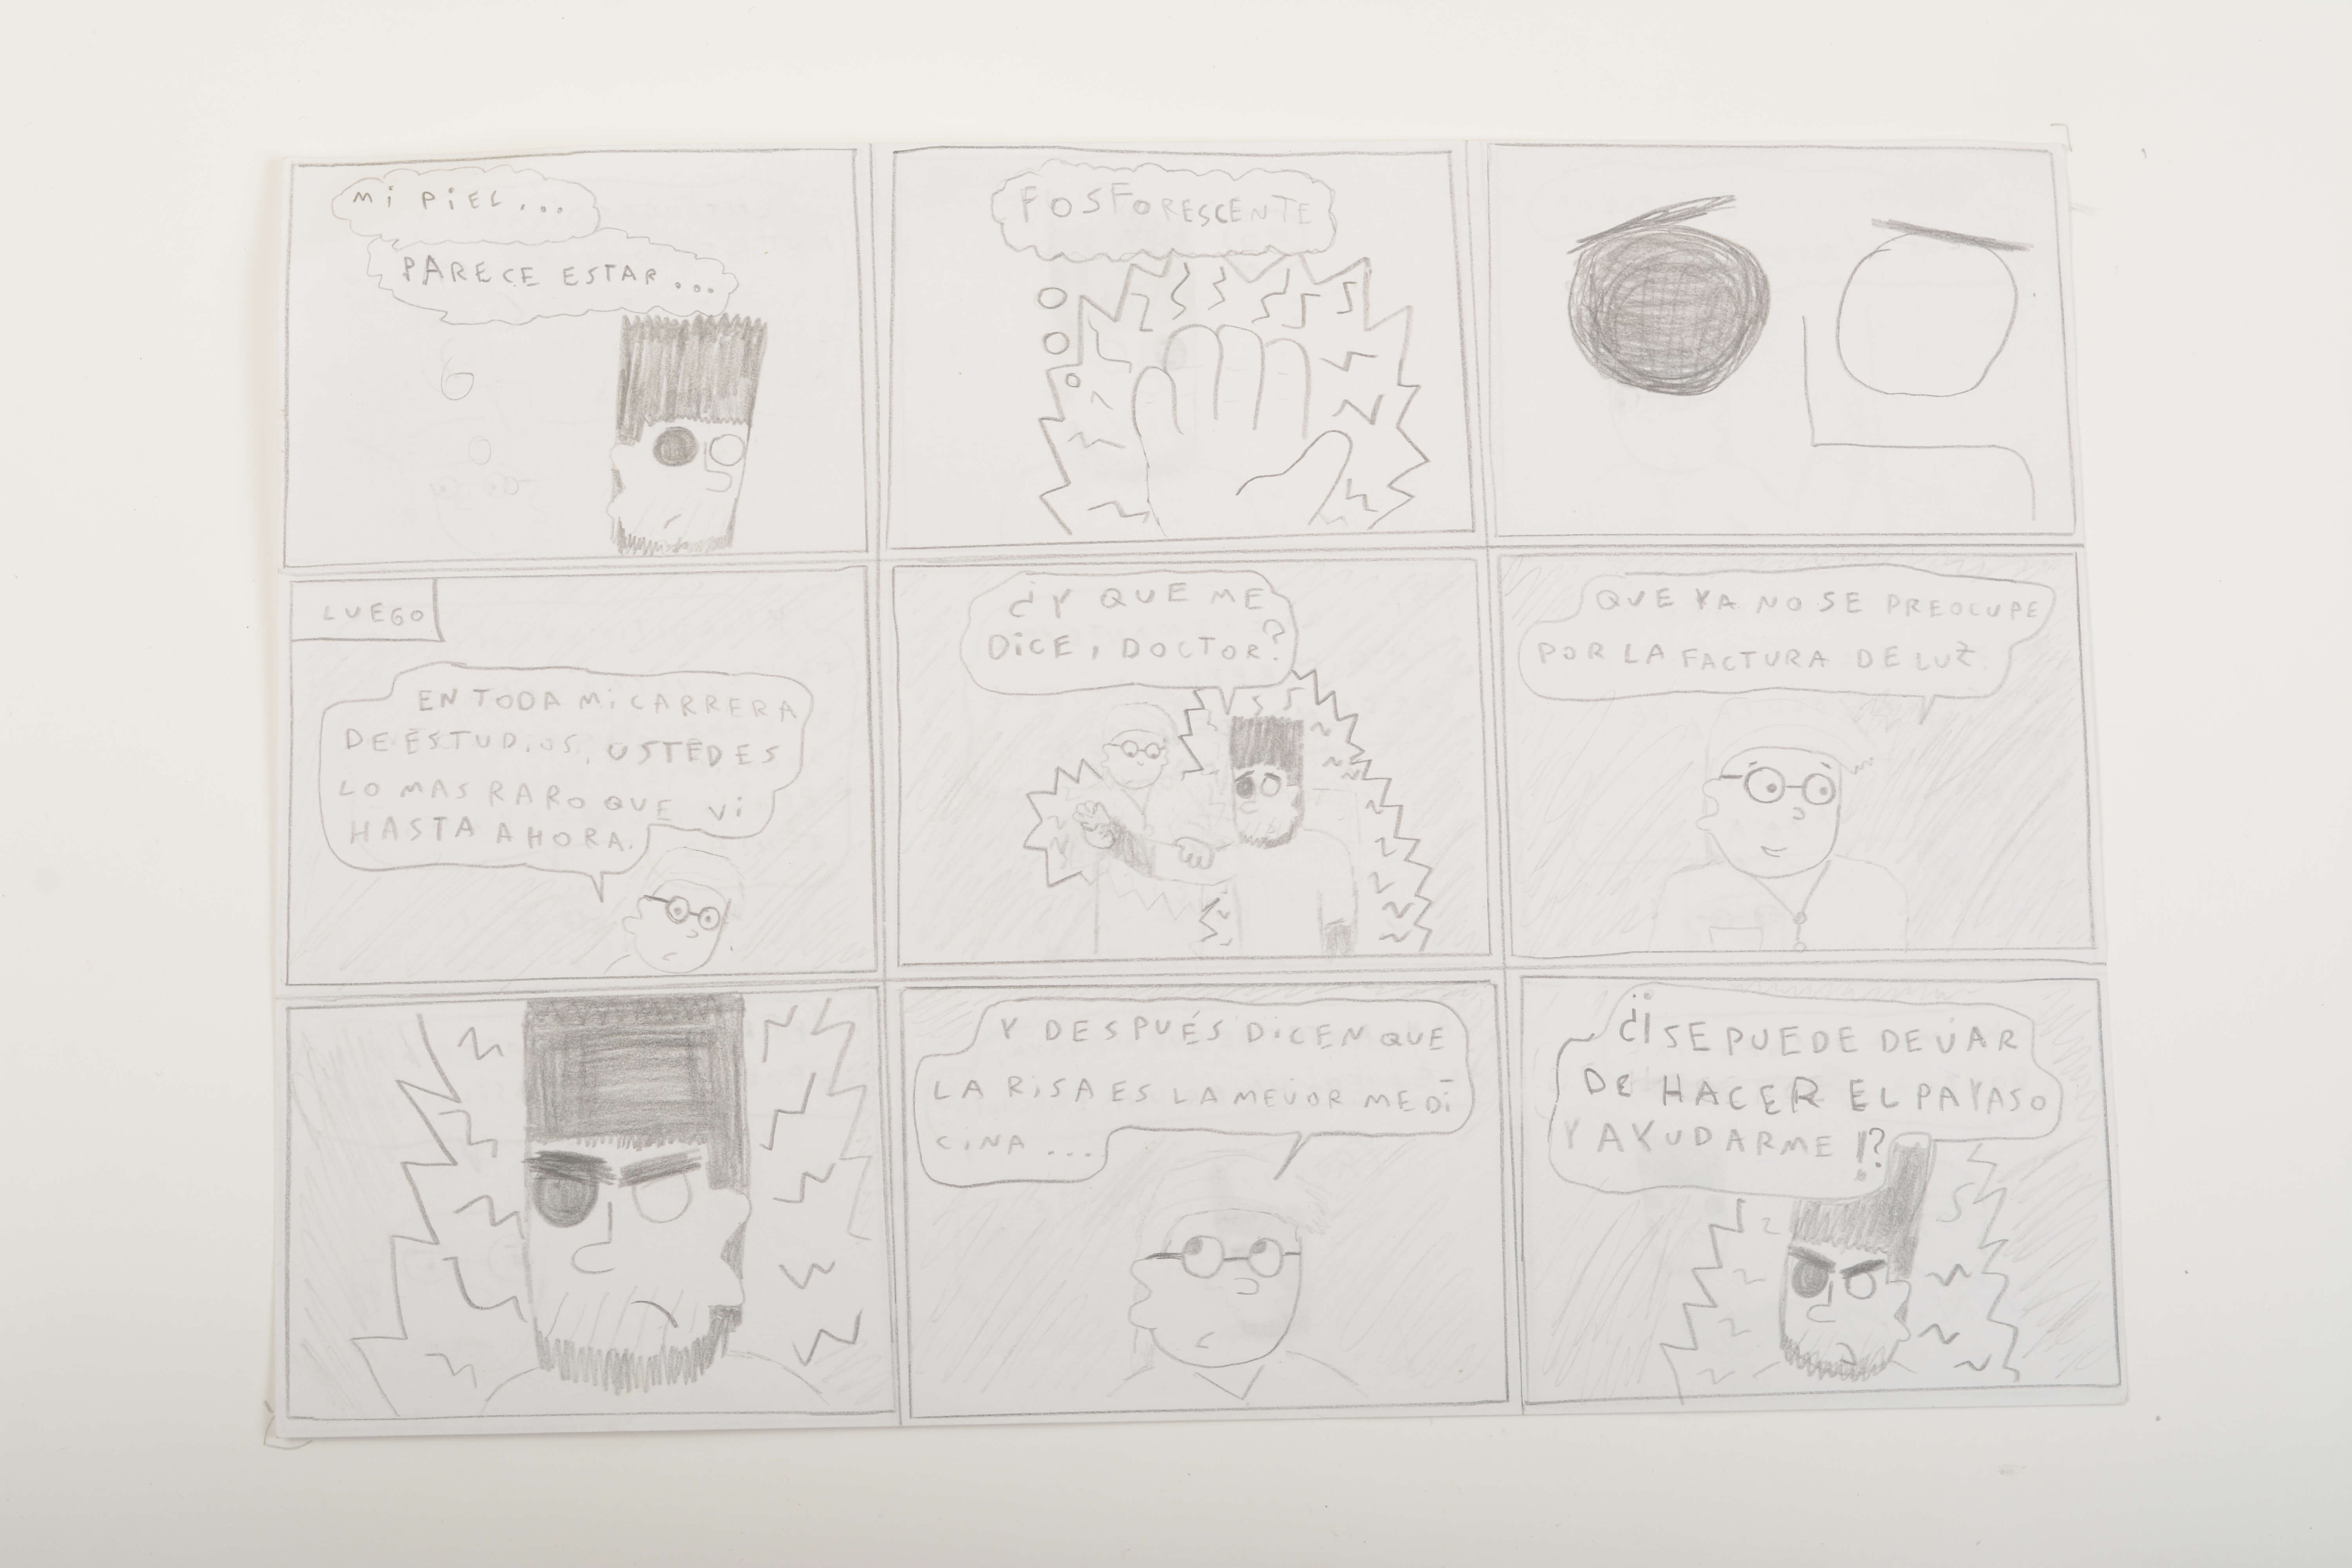 Mi PiEL...
PARECE ESTAR...
FOSFORESCENTE
LUEGO
EN TODA Mi CARRERA
DE ESTUDiOS, USTED ES
LO MAS RARO QUE Vi
HASTA AHORA.
¿Y QUE ME
DiCE, DOCTOR?
QUE YA NO SE PREOCUPE
POR LA FACTURA DE LUZ.
Y DESPUÉS DiCEN QUE
LA RiSA ES LA MEJOR MEDi
CiNA ...
¿¡SE PUEDE DEJAR
DE HACER EL PAYASO
Y AYUDARME!?